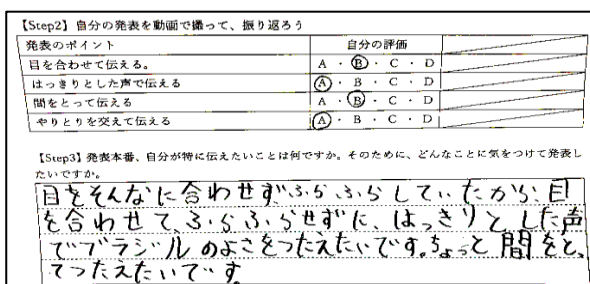 【Step2】自分の発表を動画で撮って、振り返ろう
発表のポイント 自分の評価
目を合わせて伝える。 A ・ B ・ C ・ D
はっきりとした声で伝える A ・ B ・ C ・ D
間をとって伝える A ・ B ・ C ・ D
やりとりを交えて伝える A ・ B ・ C ・ D
【Step3】発表本番、自分が特に伝えたいことは何ですか。そのために、どんなことに気をつけて発表し
たいですか。
目をそんなに合わせず、ふらふらしていたから、目
を合わせて、ふらふらせずに、はっきりとした声
でブラジルのよさをつたえたいです。ちょっと間をと、
てつたえたいです。